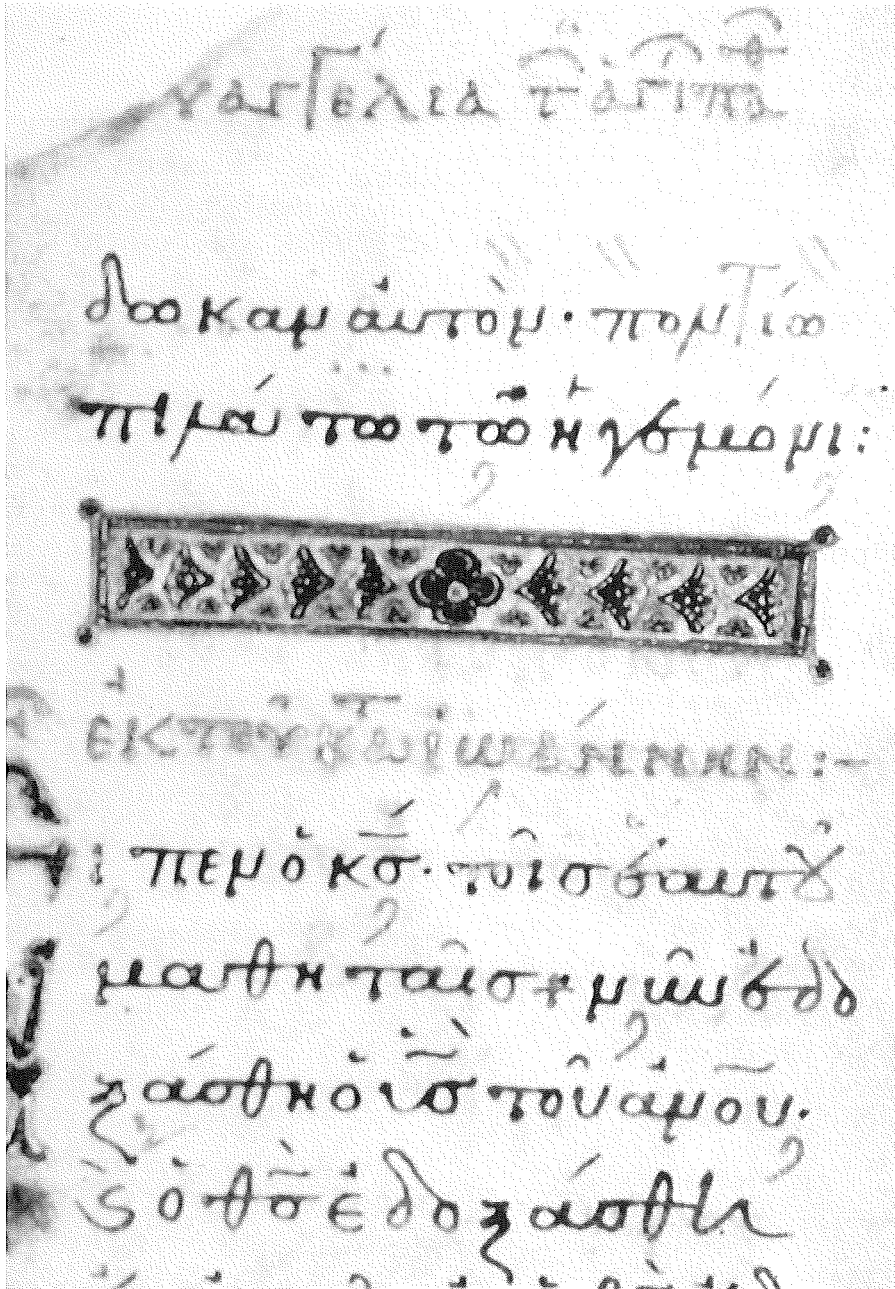 ναγγέλια τ ἁγί πα
δωκαν ἀυτὸν· ποντίω
πιλάτω τῶ ἡγεμόνι:
ἐκ τοῦ κατ ἰωάννην:-
ἶπεν ὁ κς· τοῖς ἑαυτοῦ
μαθηταῖς· νῦν ἐδο
ξάσθη ὁ ὑς τοῦ ἀνου·
ϗ ὁ θς ἐδοξάσθη